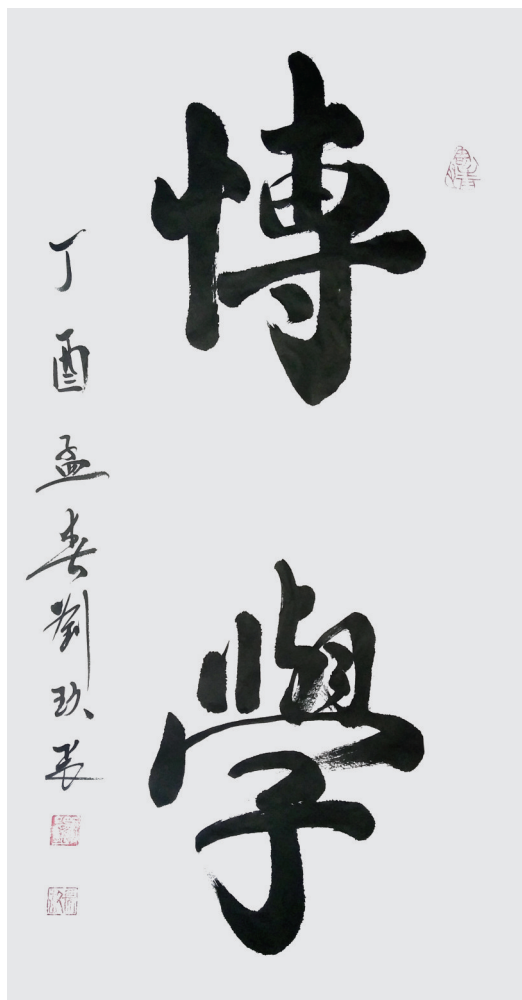 博學
丁酉孟春劉玖長